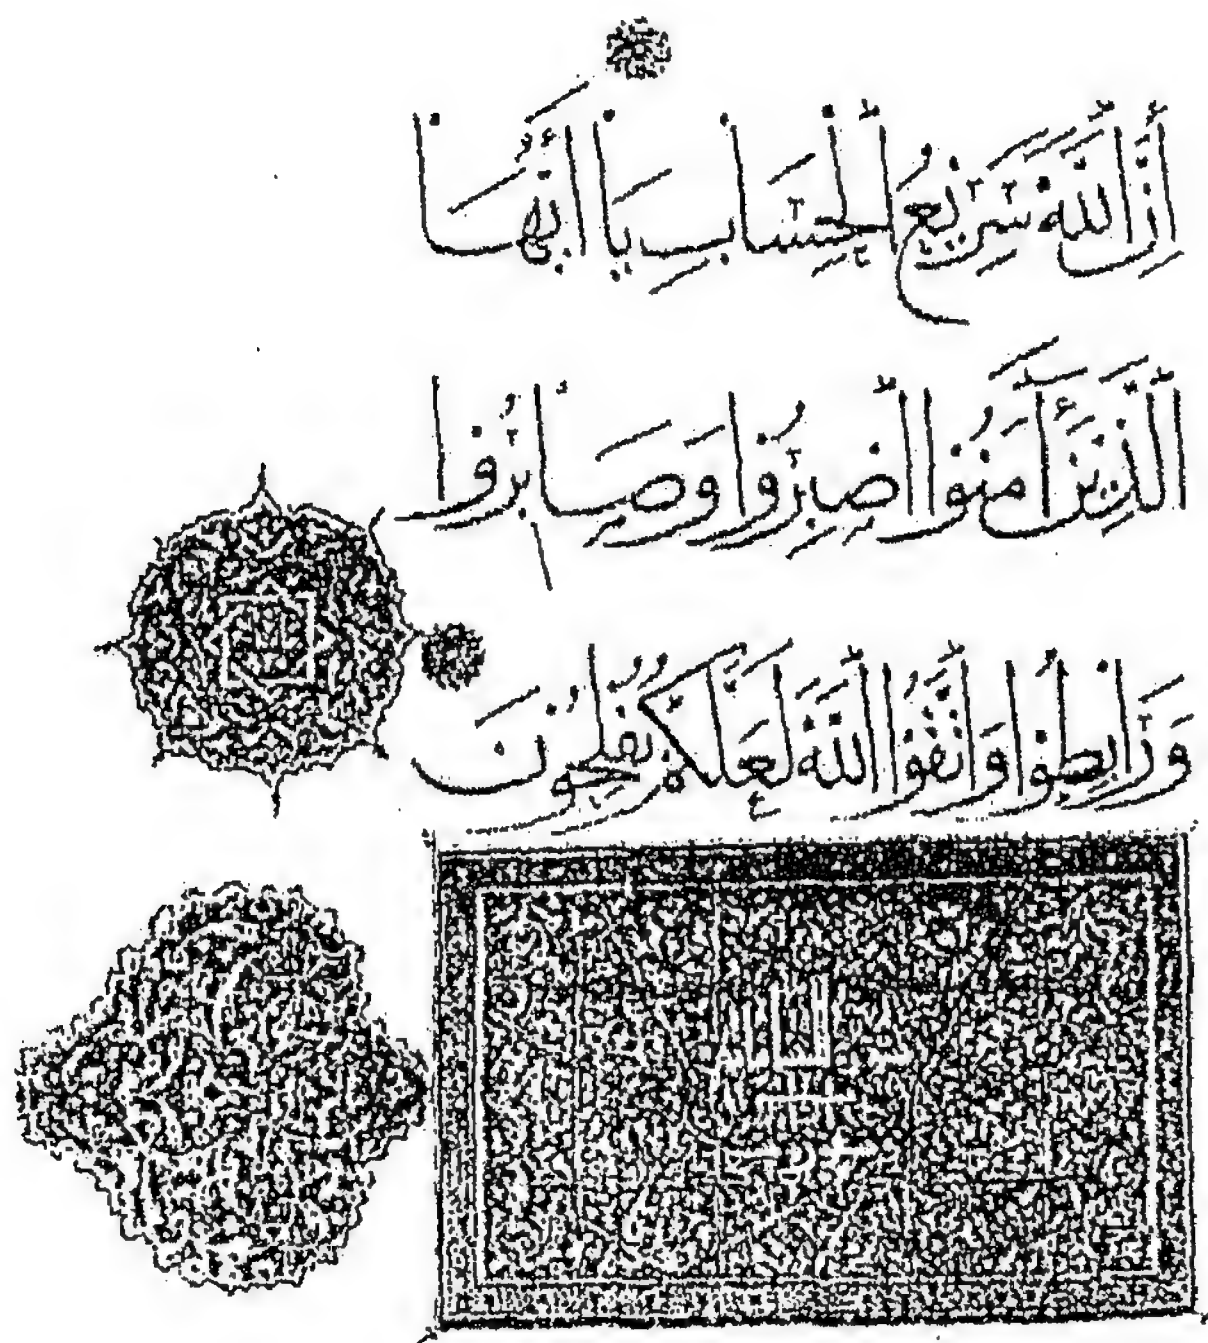 إِنَّ اللَّهَ سَرِيعُ الْحِسَابِ يَا أَيُّهَا
الَّذِينَ آمَنُوا اصْبِرُوا وَصَابِرُوا
وَرَابِطُوا وَاتَّقُوا اللَّهَ لَعَلَّكُمْ تُفْلِحُونَ